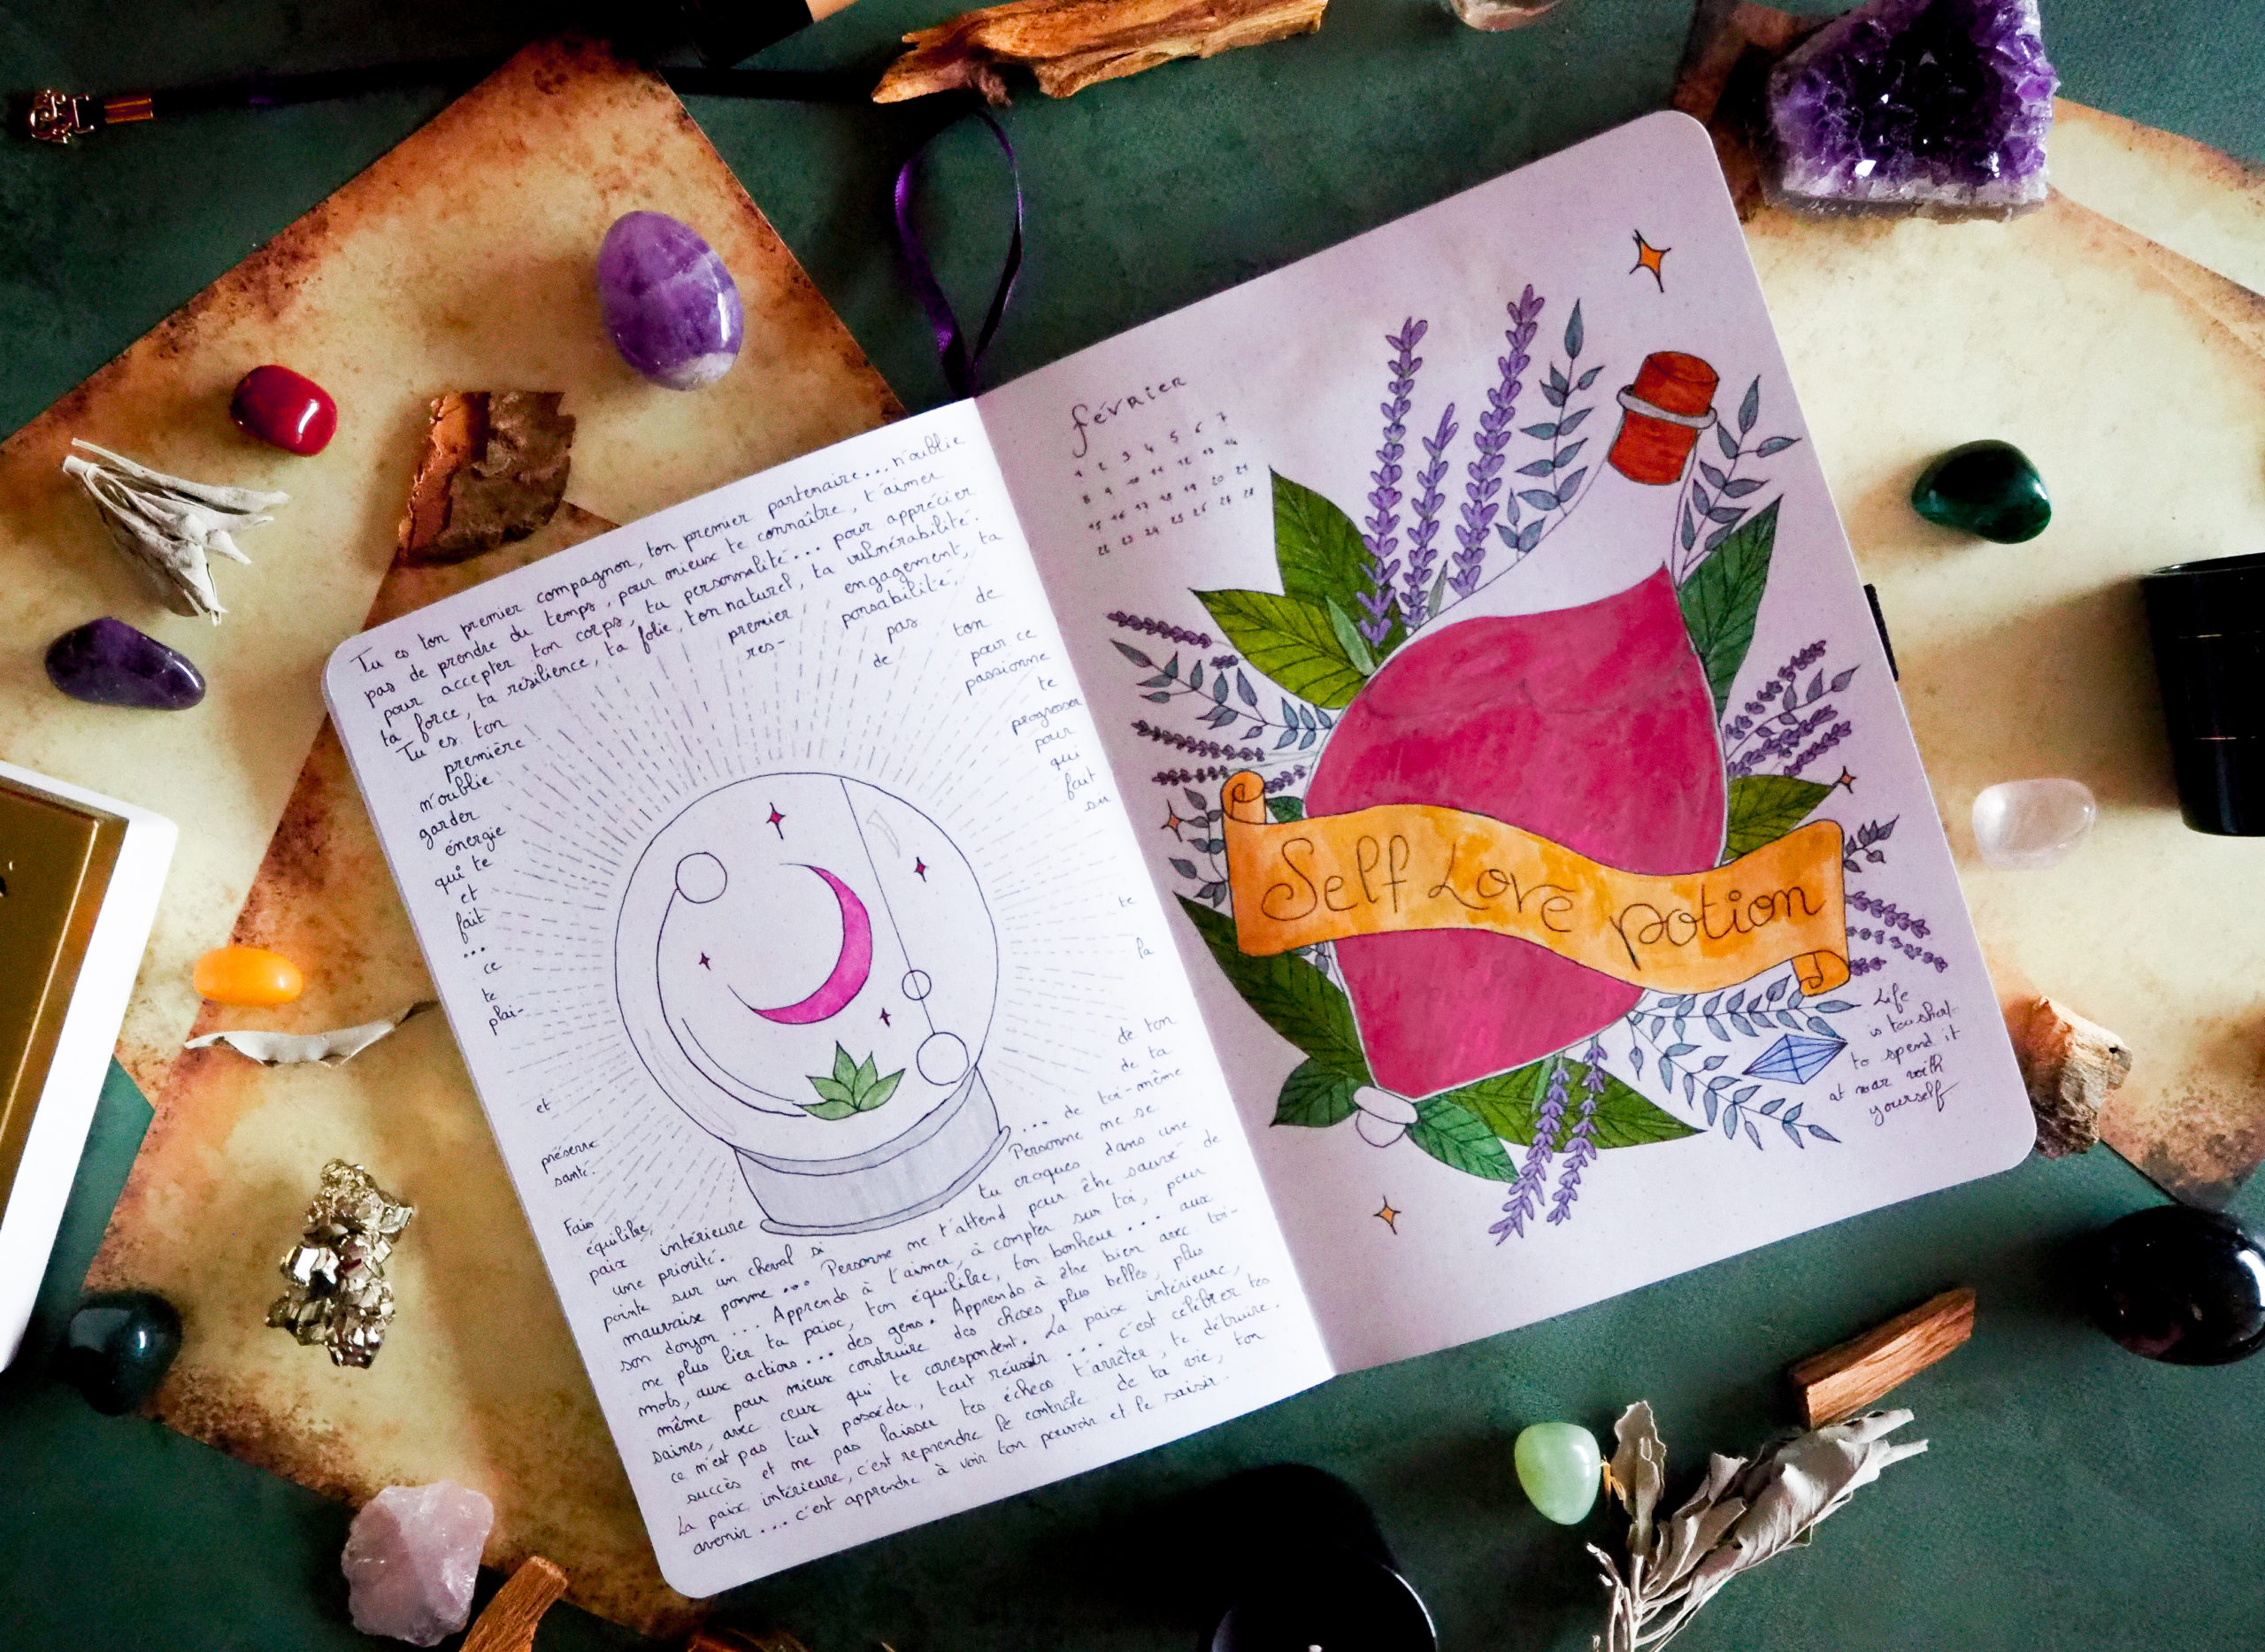 Tu es ton premier compagnon, ton premier partenaire... n'oublie
pas de prendre du temps, pour mieux te connaître, t'aimer
pour accepter ton corps, ta personnalité... pour apprécier
ta force, ta résilience, ta folie, ton naturel, ta vulnérabilité.
Tu es ton premier engagement, ta
première res- ponsabilité,
n'oublie pas de
garder de ton
énergie pour ce
qui te passionne
et te
fait progresser
... pour
ce qui
te fait
plai- su
te
et la
préserve de ton
santé. de ta
... de toi-même
Fais
équilibre,
paix intérieure
une priorité. Personne ne se
pointe sur un cheval si tu croques dans une
mauvaise pomme... Personne ne t'attend pour être sauvé de
son donjon... Apprends à t'aimer, à compter sur toi, pour
ne plus lier ta paix, ton équilibre, ton bonheur... aux
mots, aux actions... des gens. Apprends à être bien avec toi-
même pour mieux construire des choses, plus belles, plus
saines, avec ceux qui te correspondent. La paix intérieure,
ce n'est pas tout posséder, tout réussir... c'est célébrer tes
succès et ne pas laisser tes échecs t'arrêter, te détruire.
La paix intérieure, c'est reprendre le contrôle de ta vie, ton
avenir... c'est apprendre à voir ton pouvoir et le saisir.
février
1 2 3 4 5 6 7
8 9 10 11 12 13 14
15 16 17 18 19 20 21
22 23 24 25 26 27 28
Self Love potion
Life
is too short
to spend it
at war with
yourself